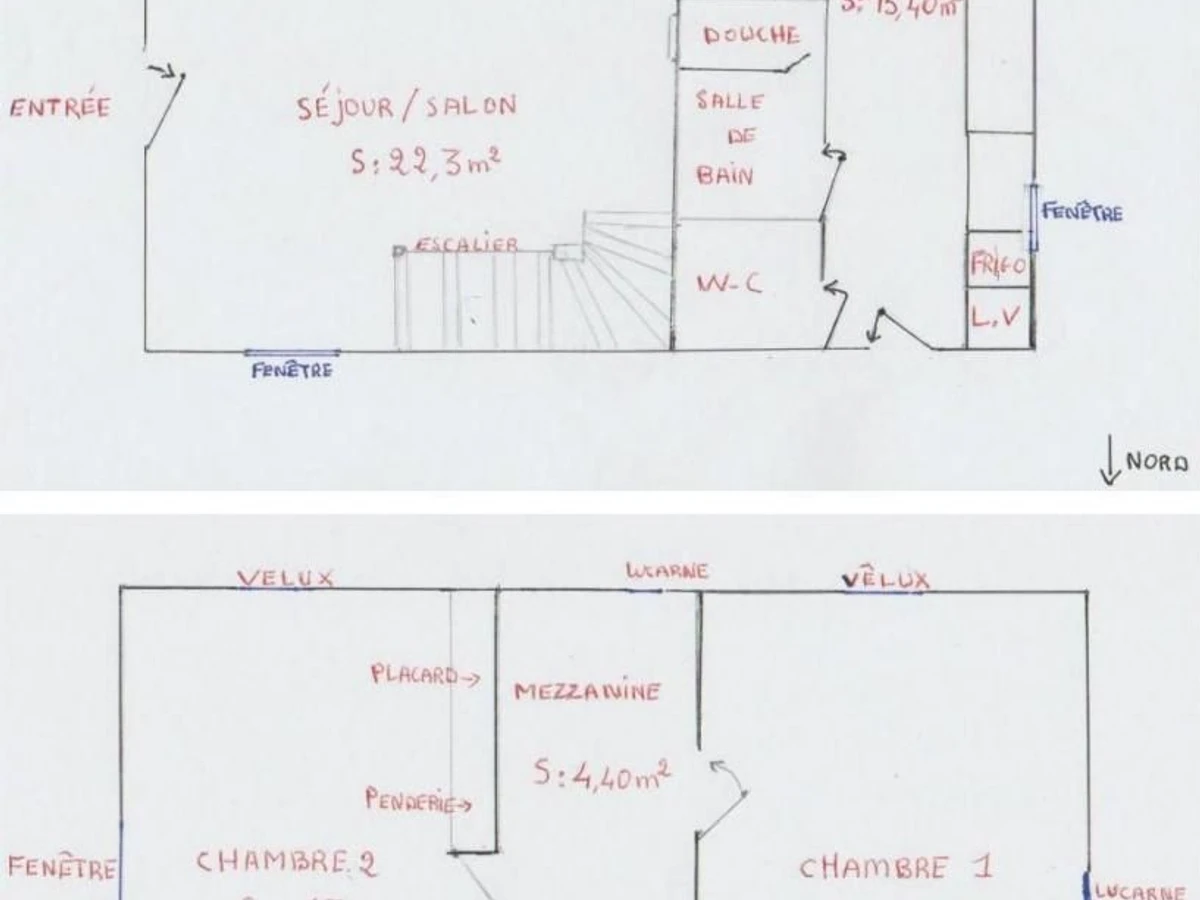 S: 15,40m
DOUCHE
ENTRÉE
SÉJOUR / SALON
S: 22,3m²
SALLE
DE
BAIN
FENÊTRE
ESCALIER
W-C
FRIGO
L.V
FENÊTRE
NORD
VELUX
LUCARNE
VÊLUX
PLACARD→
MEZZANINE
S: 4,40m²
PENDERIE→
FENÊTRE
CHAMBRE.2
CHAMBRE 1
LUCARNE